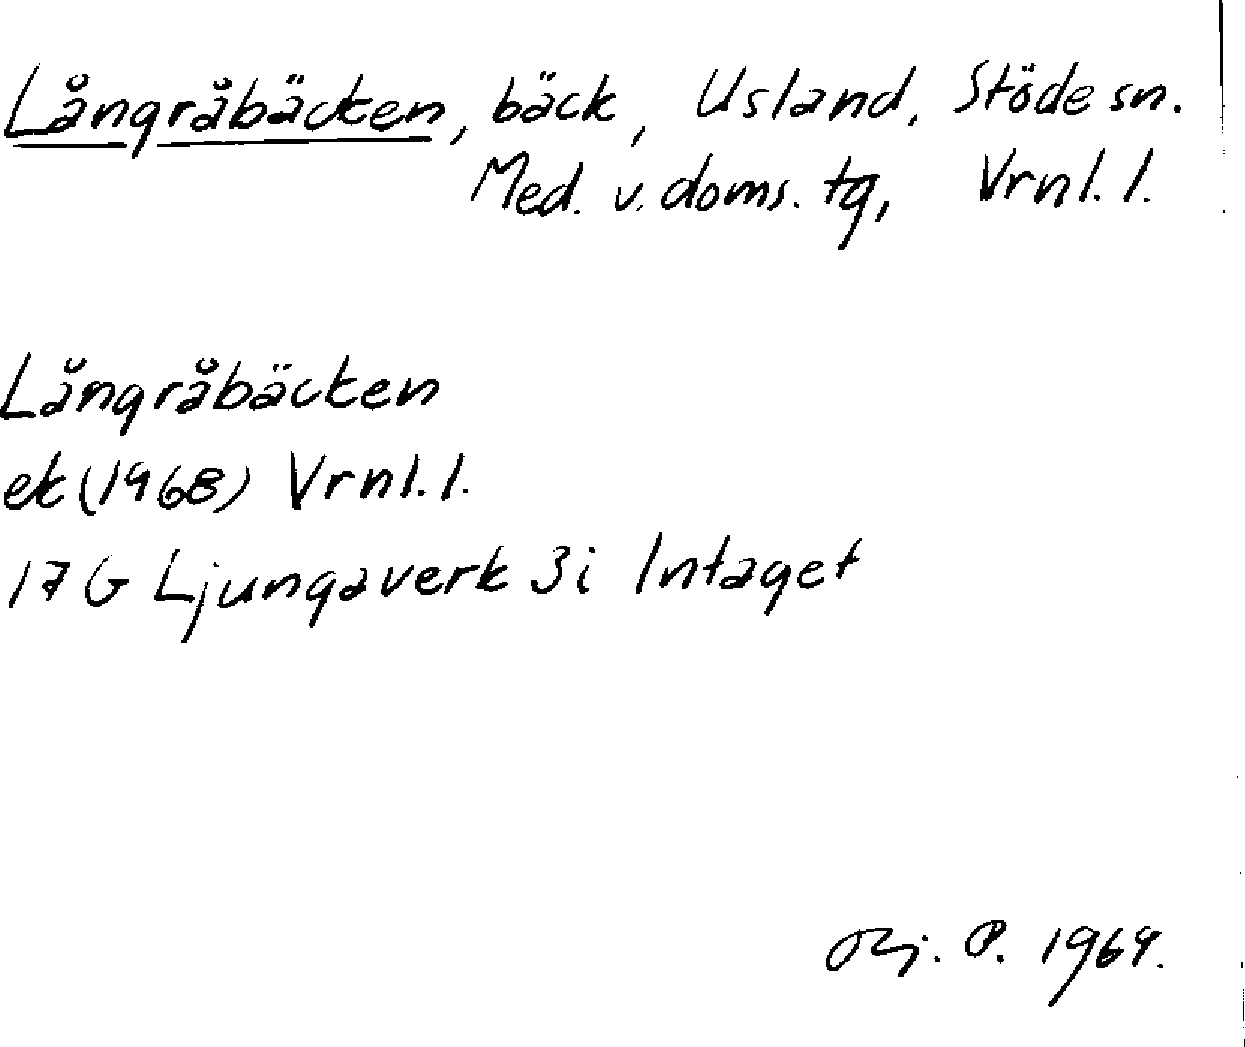 Långråbäcken, bäck, Usland, Stöde sn.
Med. v. doms. tg, Vrnl. l.
Långråbäcken
ek (1968) Vrnl. l.
17 G Ljungaverk 3i Intaget
P. 1969.